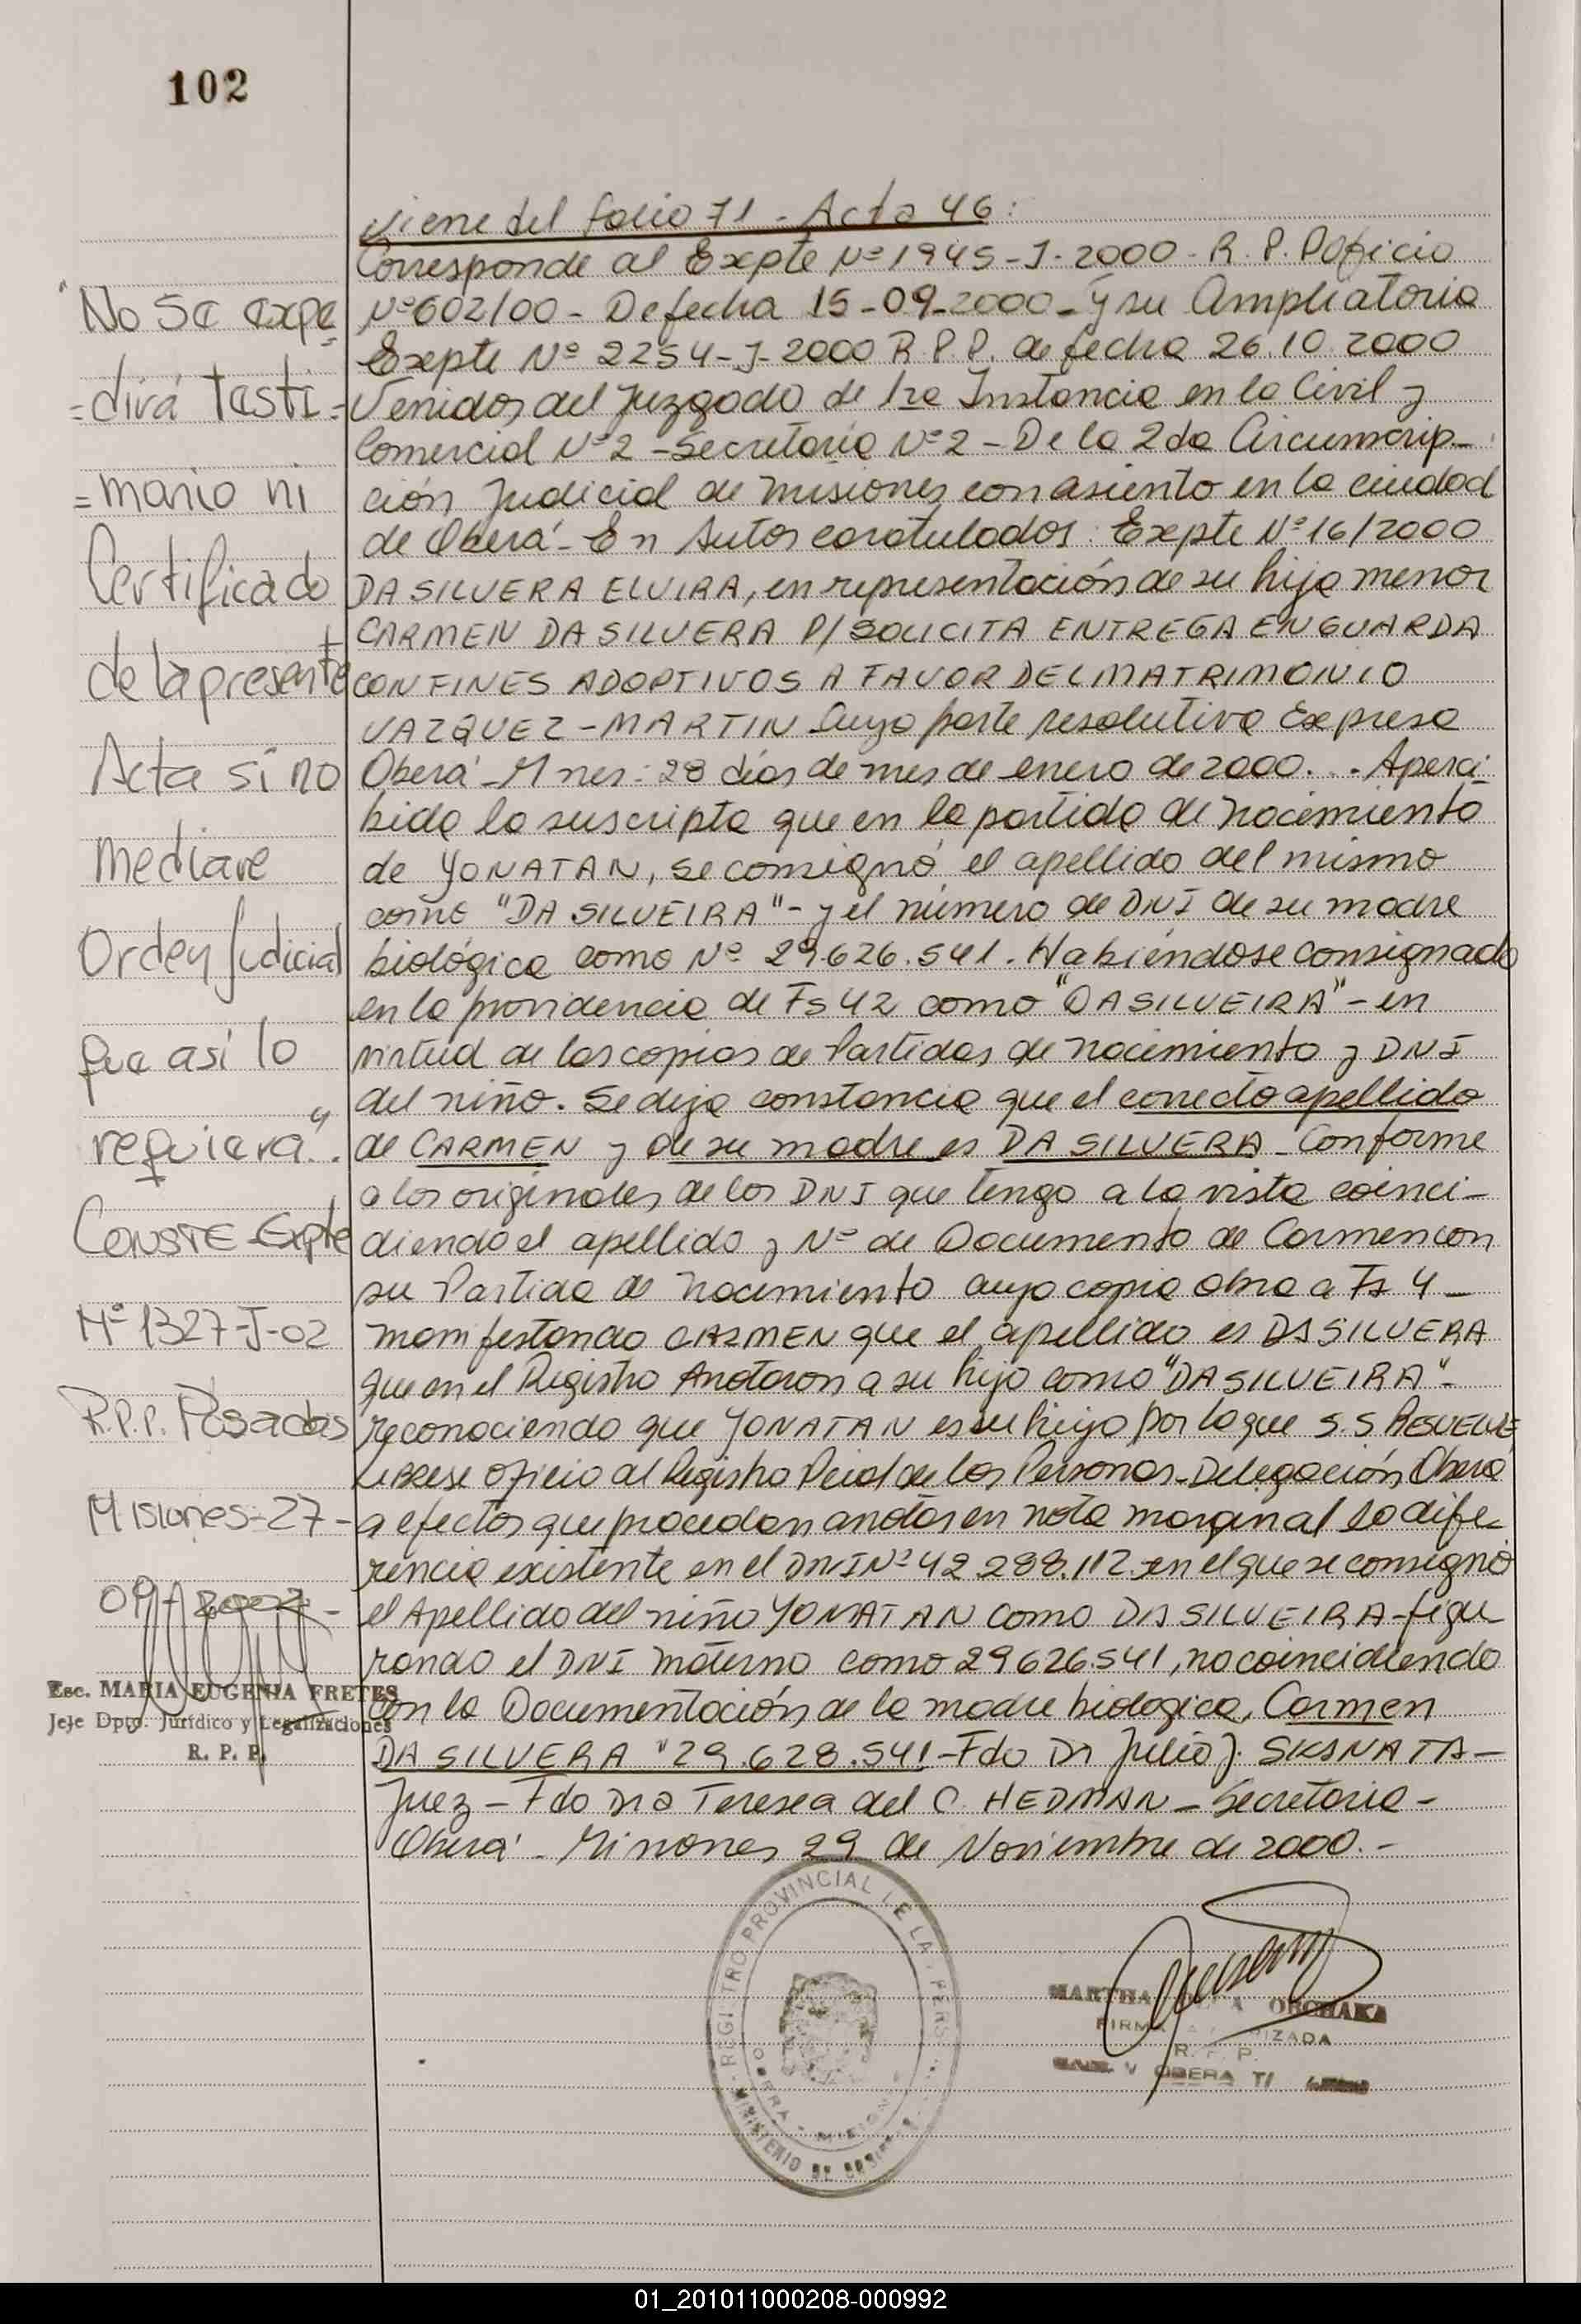 102
Viene del folio 71 - Acta 46:
Corresponde al Expte Nº 1945-J-2000 - R.P.P Oficio
Nº 602/00 - De fecha 15-09-2000 - y su Ampliatoria
Expte Nº 2254-J-2000 R.P.P. de fecha 26.10.2000
Venidos del Juzgado de 1ra Instancia en lo Civil y
Comercial Nº 2 - Secretaria Nº 2 - De la 2da Circunscrip-
ción Judicial de Misiones con asiento en la ciudad
de Oberá - En Autos caratulados: Expte Nº 16/2000
DA SILVERA ELVIRA, en representación de su hija menor
CARMEN DA SILVERA P/ SOLICITA ENTREGA EN GUARDA
CON FINES ADOPTIVOS A FAVOR DEL MATRIMONIO
VAZQUEZ - MARTIN Cuya parte resolutiva Expresa
Oberá - Mnes: 28 días de mes de enero de 2000... Aperci-
bida la suscripta que en la partida de nacimiento
de YONATAN, se consignó el apellido del mismo
como "DA SILVEIRA" - y el número de DNI de su madre
biológica como Nº 29.626.541. Habiéndose consignado
en la providencia de Fs 42 como "DA SILVEIRA" - en
virtud de las copias de Partidas de nacimiento y DNI
del niño. Se deja constancia que el correcto apellido
de CARMEN y de su madre es DA SILVERA - Conforme
a los originales de los DNI que tengo a la vista coinci-
diendo el apellido y Nº de Documento de Carmen con
su Partida de Nacimiento cuya copia obra a Fs 4 -
manifestando CARMEN que el apellido es DA SILVERA
que en el Registro Anotaron a su hijo como "DA SILVEIRA" -
reconociendo que YONATAN es su hijo por lo que S.S RESUELVE
LIBRESE Oficio al Registro Pcial de las Personas - Delegación Oberá
a efectos que procedan anotar en nota marginal la dife-
rencia existente en el DNI Nº 42.288.112 en el que se consignó
el Apellido del niño YONATAN como DA SILVEIRA - figu
rando el DNI materno como 29626.541, no coincidiendo
con la Documentación de la madre biologica, Carmen
DA SILVERA "29.628.541 - Fdo Dr Julio J. SKSNATA -
Juez - Fdo Dra Teresa del C. HEDMAN - Secretaria -
Oberá - Misiones 29 de Noviembre de 2000.-
"No se expe
=dirá testi=
=monio ni
Certificado
de la presente
Acta si no
mediare
Orden Judicial
que asi lo
requiera".
CONSTE Expte
Nº 1327-J-02
R.P.P. Posadas
Misiones-27-
09-2002-
Esc. MARIA EUGENIA FRETES
Jefe Dpto. Jurídico y Legalizaciones
R. P. P.
REGISTRO PROVINCIAL DE LA PERS
MINISTERIO DE
MARTHA ORCHAKA
FIRMA AUTORIZADA
R. P. P.
OBERA
01_201011000208-000992